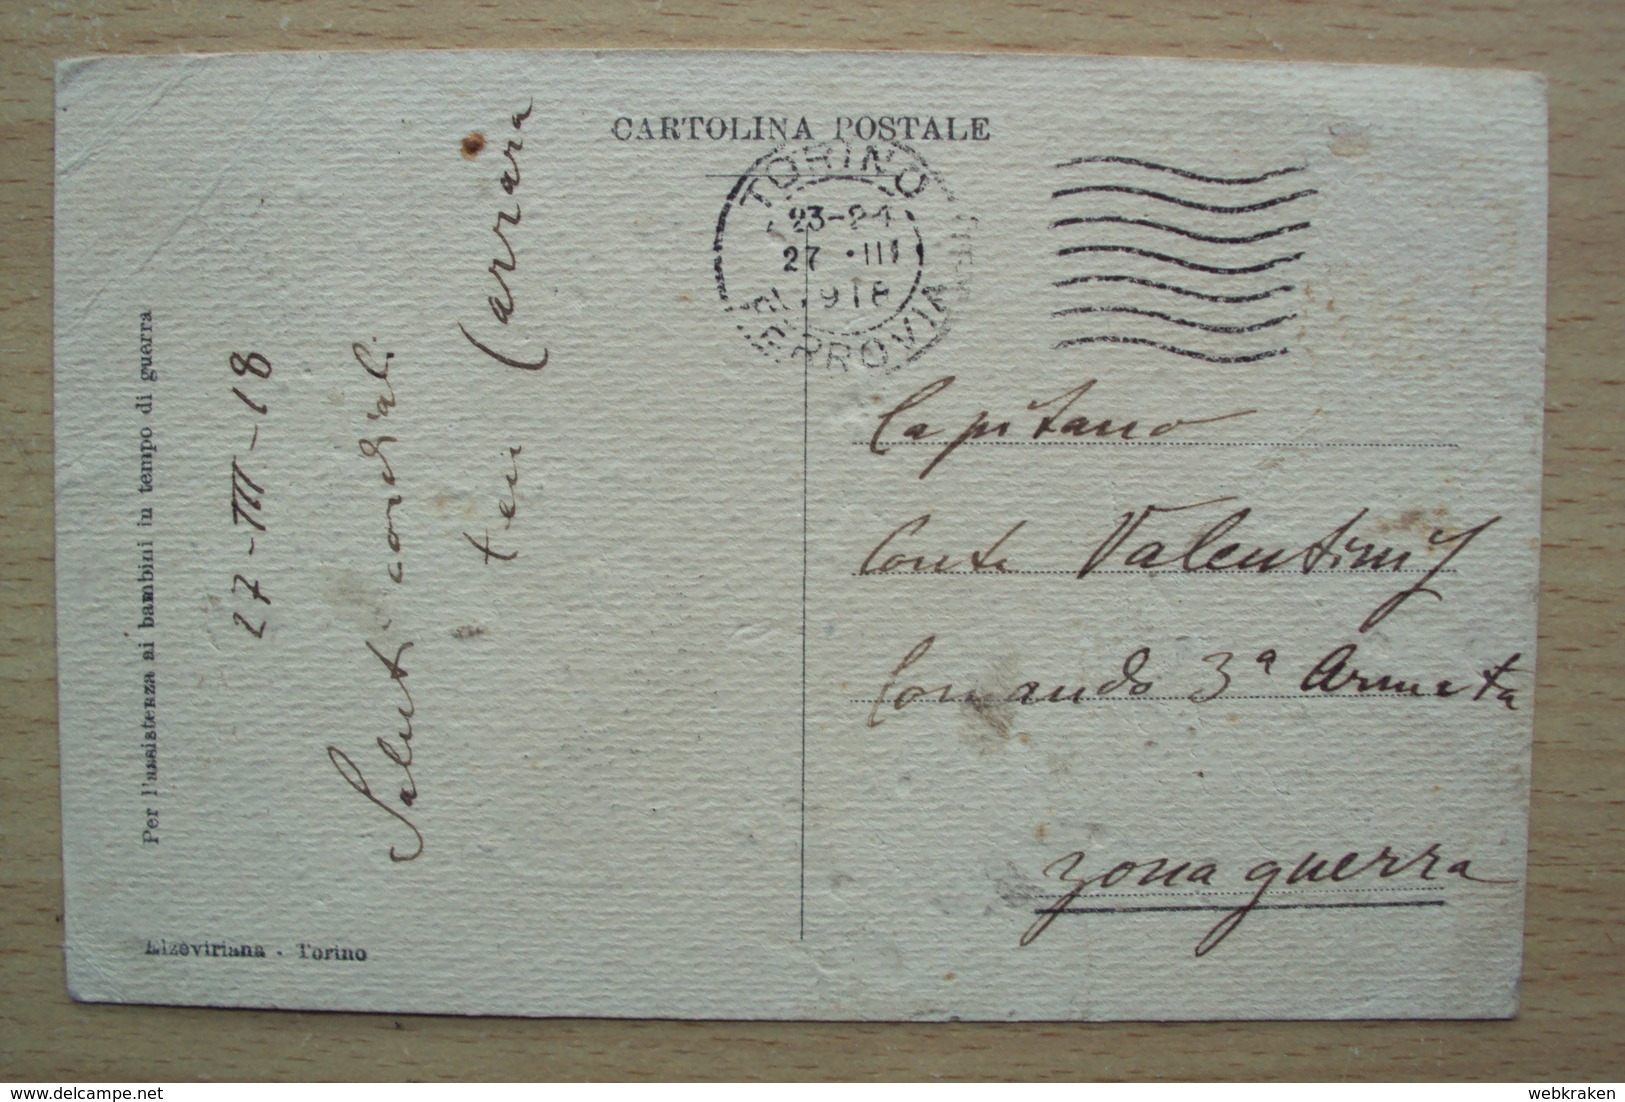 CARTOLINA POSTALE
TORINO
23-24
27 · III
1918
FERROVIA
Per l'assistenza ai bambini in tempo di guerra
27-III-18
Saluti cordiali
ten Carrara
Elzeviriana - Torino
Capitano
Conte Valentiny
Comando 3ª Armata
zona guerra
delcampe.net
webkraken